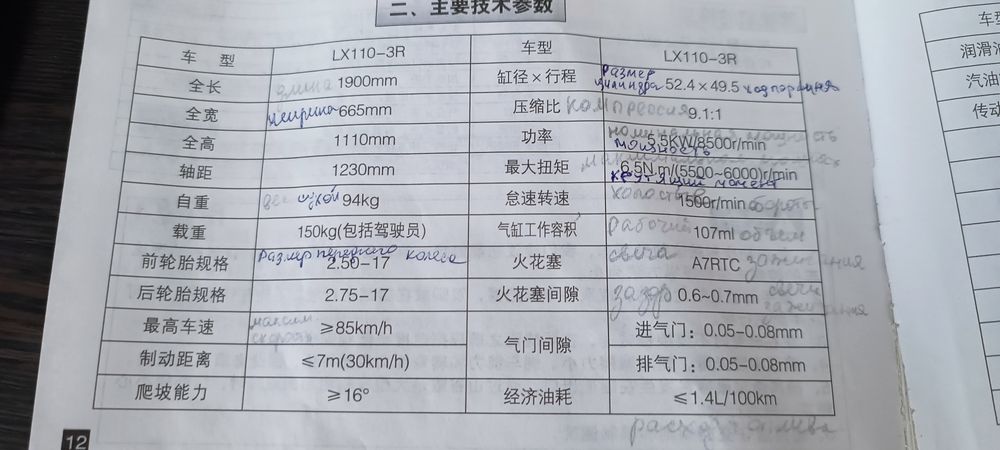 二、主要技术参数
车 型 LX110-3R 车型 LX110-3R
全长 длина 1900mm 缸径×行程 размер цилиндра 52.4×49.5 ход поршня
全宽 ширина 665mm 压缩比 компрессия 9.1:1
全高 1110mm 功率 номинальная мощность 5.5KW/8500r/min мощность
轴距 1230mm 最大扭矩 6.5N.m/(5500~6000)r/min крутящий момент
自重 вес сухой 94kg 怠速转速 холостые 1500r/min обороты
载重 150kg(包括驾驶员) 气缸工作容积 рабочий 107ml объем
前轮胎规格 размер переднего колеса 2.50-17 火花塞 свеча A7RTC зажигания
后轮胎规格 2.75-17 火花塞间隙 зазор 0.6~0.7mm свечи зажигания
最高车速 максим скорость ≥85km/h 气门间隙 进气门：0.05-0.08mm
制动距离 ≤7m(30km/h) 排气门：0.05-0.08mm
爬坡能力 ≥16° 经济油耗 ≤1.4L/100km
расход топлива
12
车型
润滑油
汽油
传动